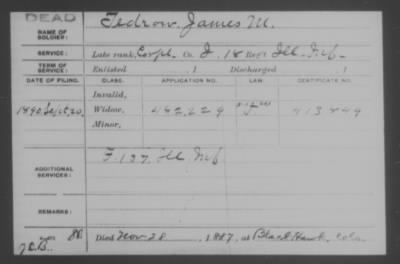 DEAD
NAME OF SOLDIER: Tedrow, James M.
SERVICE: Late rank, Corpl. Co. I, 18 Reg't Ill. Inf.
TERM OF SERVICE: Enlisted , 1 Discharged , 1
DATE OF FILING. CLASS. APPLICATION NO. LAW. CERTIFICATE NO.
Invalid,
1890, Sept, 20, Widow, 462,229 413849
Minor,
ADDITIONAL SERVICES: F. 137. Ill Inf
REMARKS:
Died Nov 28, 1887, at Black Hawk, Colo